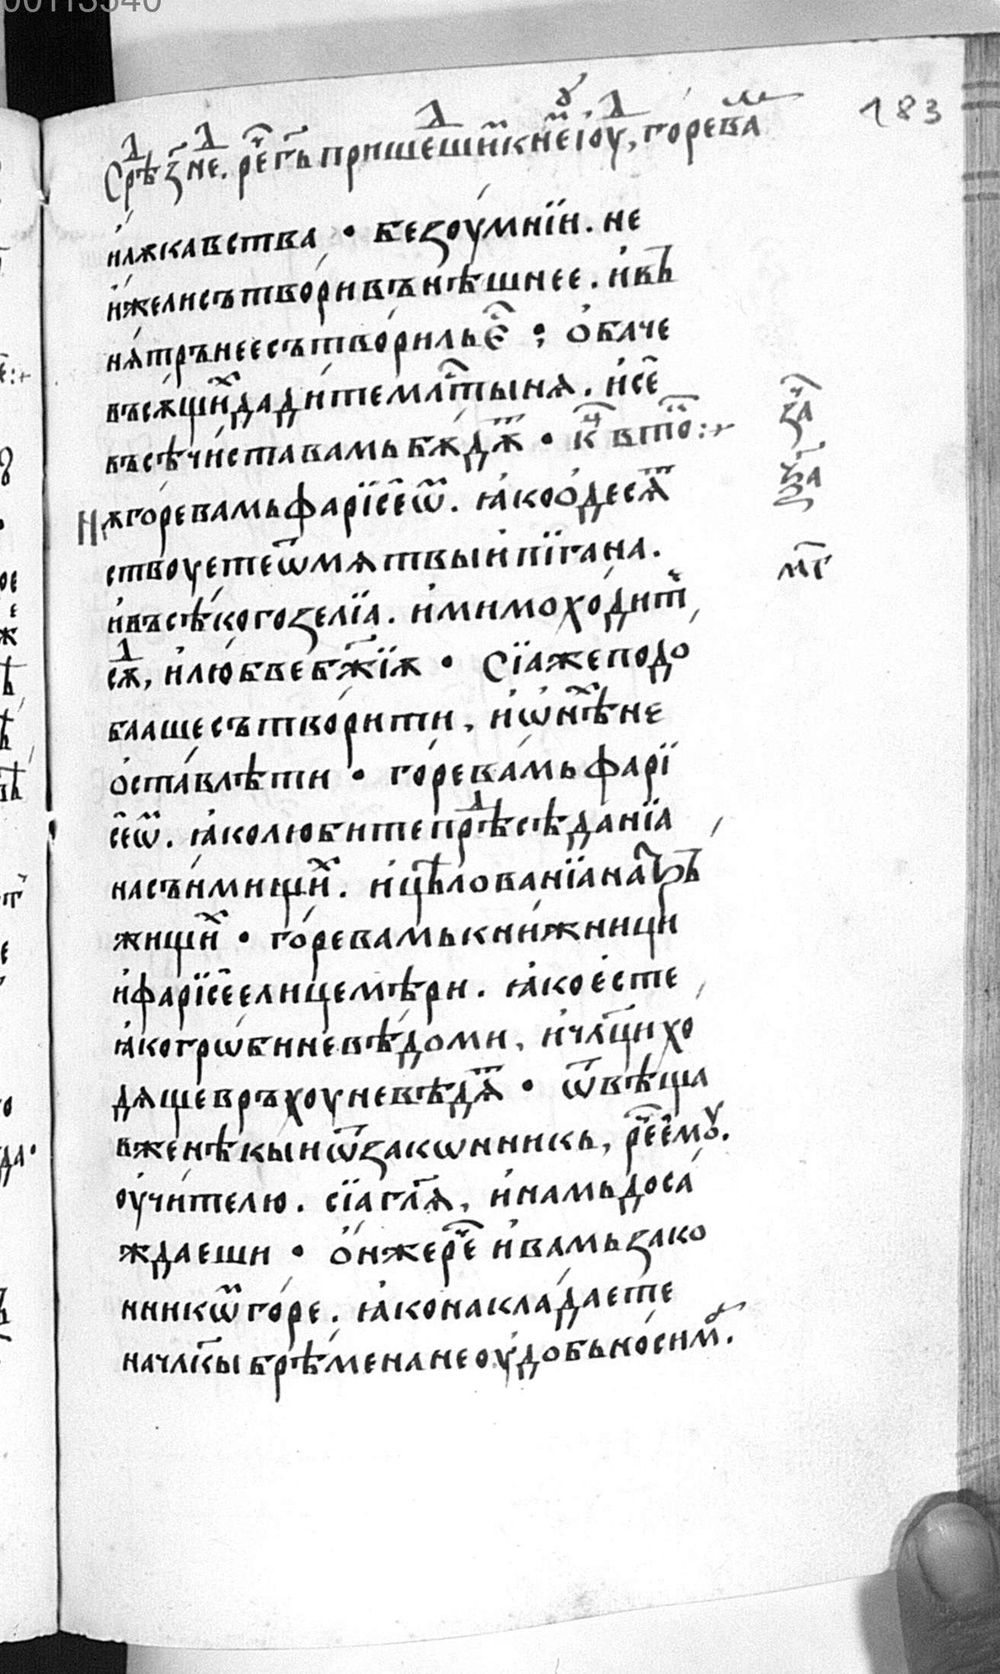 00113540
183
Срѣⷣ з҃ не҃ⷣ. реⷱ҇ гь пришеⷣшиⷨ к немоу їоуⷣ, горе ваⷨ
и҆ лѫкавства • безоу́мнїи. не
и҆же ли сътво́ри въ нѣшнее. и҆ вь҆
нѧтрънее сътвори́ль є҆ⷭ҇ ; ѻ҆баче
въсѫщиⷯ дади́те млⷭ҇тынѧ. и҆ се҆
въсѣ чи́ста вамь бѫдѫⷮ • кⷰ҇ вътоⷬ҇ :~
зⷱ҇а
Нѫ горе вамь фарїсеѡⷨ. ꙗ҆ко ѻ҆десѧⷮ
ч҃а
ствоуете ѿ мѧтвы и҆ пїгана.
мⷬ҇г
и҆ въсѣкого зелїа. и҆ мимоходитⷷ,
сѫⷣ, и҆ любве бж҃їѫ • Сїа же подо
бааше сътвори́ти, и҆ ѡ҆нѣⷯ не
ѻ҆ста́влѣти • го́ре ва́мь фарї
сеѡⷨ. ꙗ҆ко любите прѣⷣсѣданїа
на съ́нмищиⷯ. и҆ цѣлованїа на трь҆
жищиⷯ • го́ре вамь кни́жници
и҆ фарїсее лицемѣри. ꙗ҆ко є҆сте
ꙗ҆ко гроби невѣ́доми, и҆ чл҃ци хо
дѧще връхоу не вѣдѧⷮ • ѿвѣща
вже нѣкы и҆ ѿ законникь, реⷱ҇ є҆моу.
оу҆чи́телю. сїа гл҃ѧ, и҆ намь доса
ждаеши • ѻ҆н же реⷱ҇ и҆ вамь зако
нникѡⷨ го́ре. ꙗ҆ко накла́даете
на чл҃кы брѣ́мена не оу҆добь но́симⷶ.